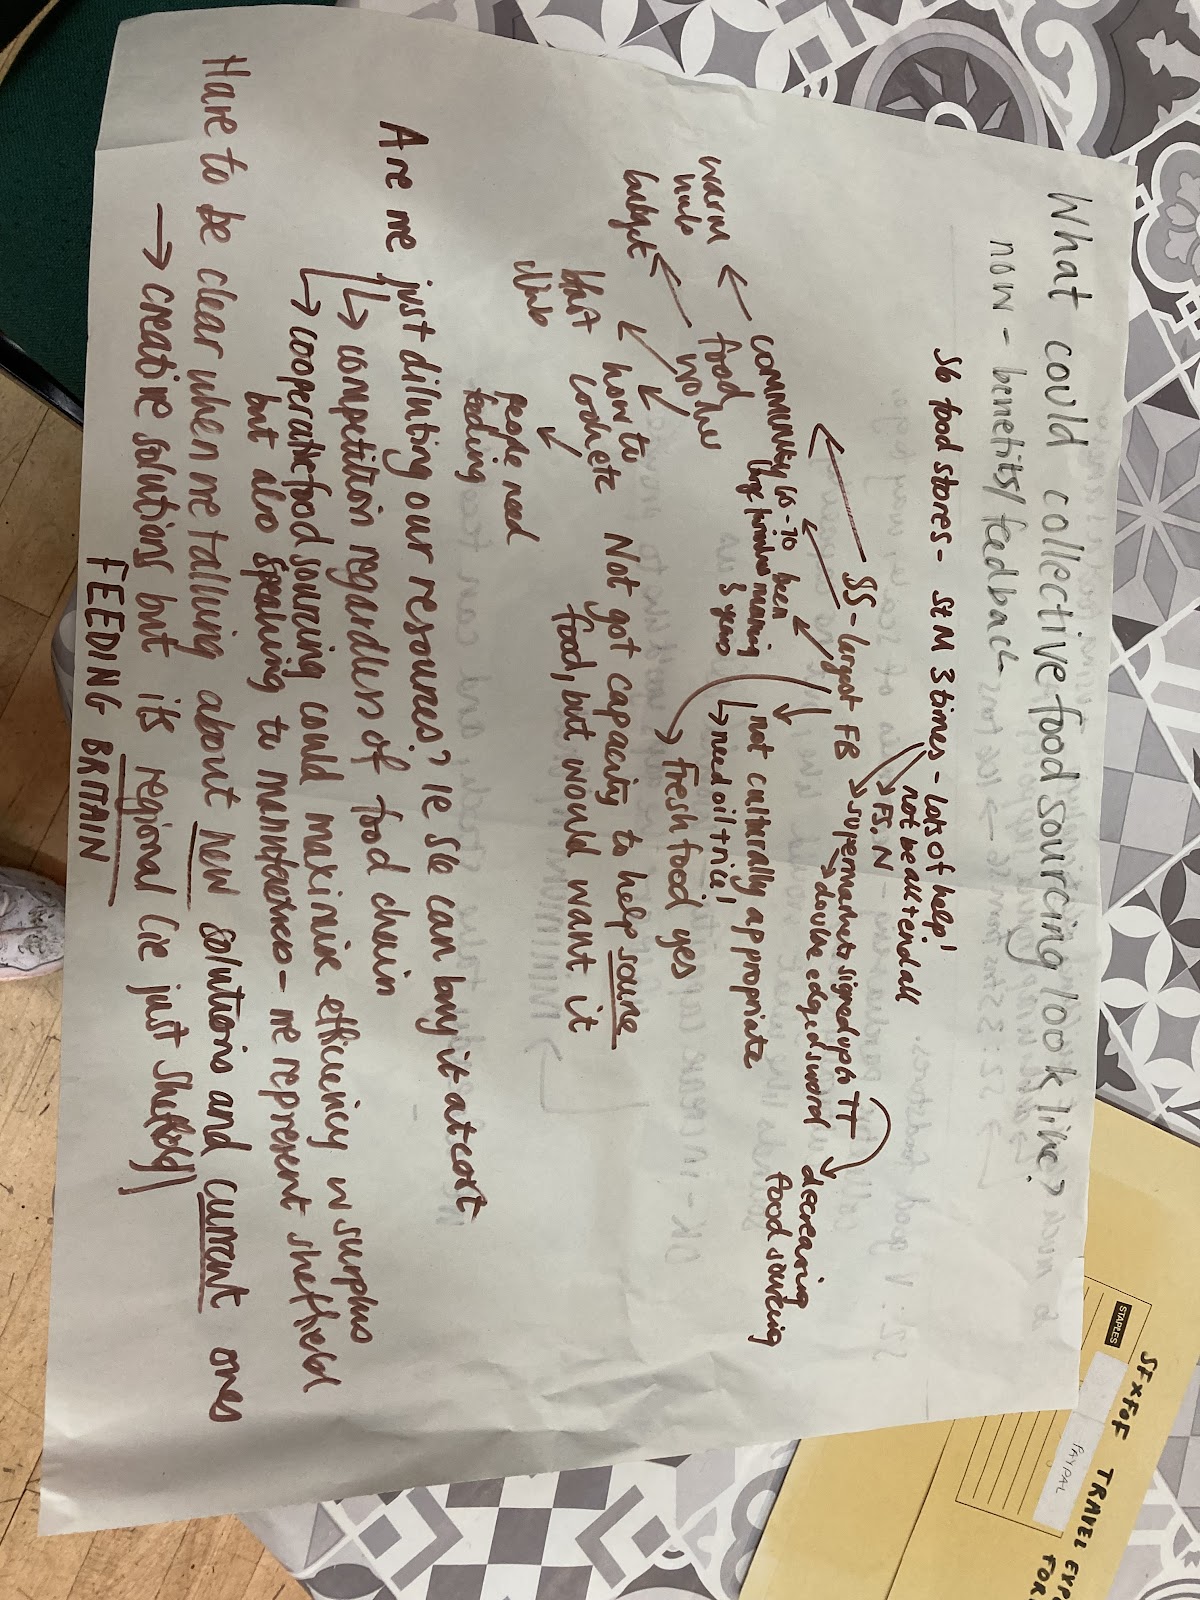 What could collective food sourcing look like?
now - benefits/feedback
S6 food stores - St M 3 times - lots of help!
not be all + end all
FS.N
SS - largest FB → supermarkets signed up to TT
→ double edged sword
decreasing
food sourcing
community is - 70
been
running
3 years
not culturally appropriate
↳ need oil + rice,
→ fresh food yes
food
no he
warm
hub
budget
how to
cook etc
people need
feeding
Not got capacity to help source
food, but would want it
Are we just diluting our resources? ie S6 can buy it at cost
↳ competition regardless of food chain
↳ cooperative food sourcing could maximise efficiency w surplus
but also speaking to - we represent sheffield
Have to be clear when we talking about new solutions and current ones
→ creative solutions but its regional (ie just Sheffield)
FEEDING BRITAIN
STAPLES
PAYPAL
SFXFOF TRAVEL EXP
FOR